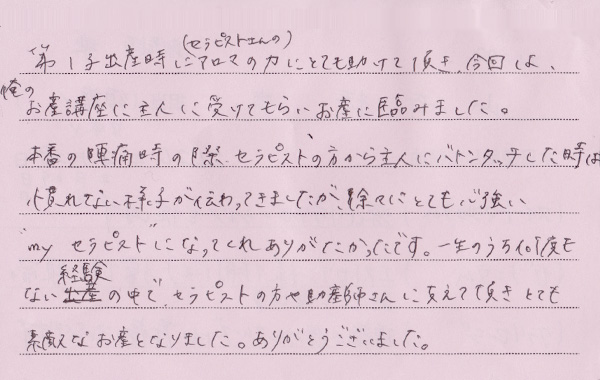 (セラピストさんの)
第1子出産時にアロマの力にとても助けて頂き、今回は、
俺の
お産講座に主人に受けてもらいお産に臨みました。
本番の陣痛時の際、セラピストの方から主人にバトンタッチした時は
慣れない様子が伝わってきましたが、徐々にとても心強い
"my セラピスト"になってくれありがたかったです。一生のうち何度も
経験
ない出産の中で、セラピストの方や助産師さんに支えて頂きとても
素敵なお産となりました。ありがとうございました。